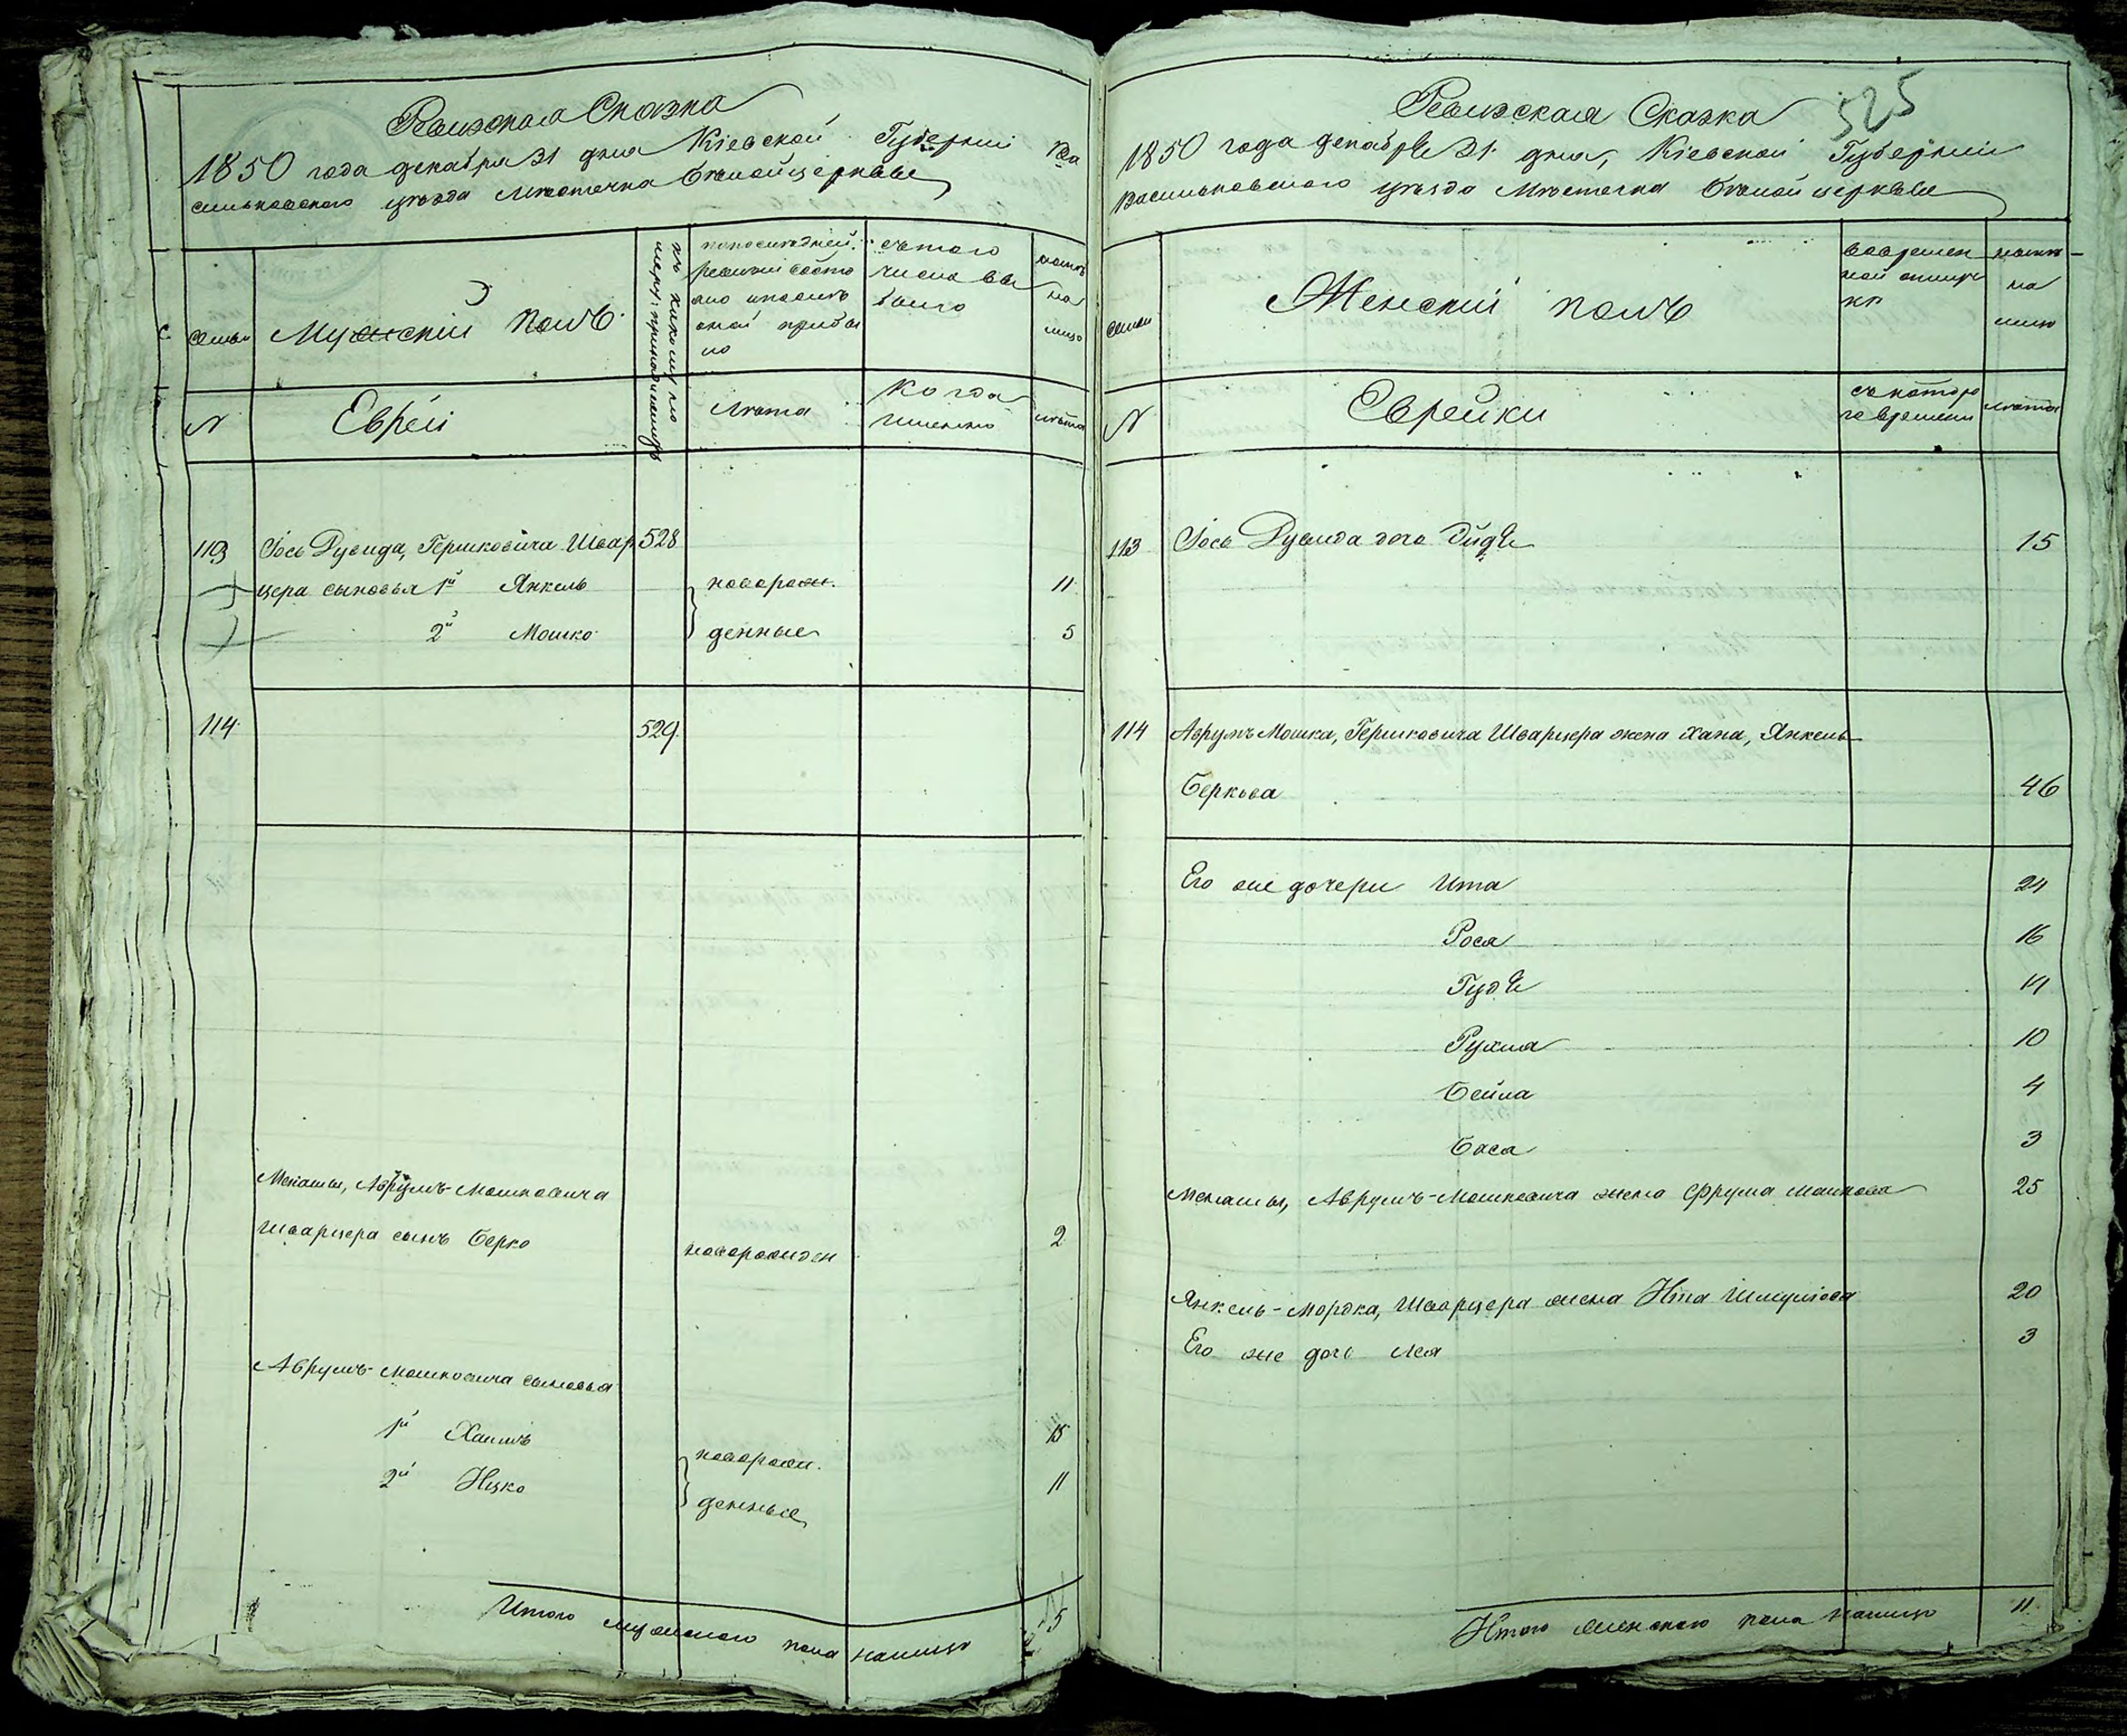 Ревизская Сказка
1850 года декабря 31 дня Кіевской Губерніи Ва
сильковскаго уѣзда Мѣстечка Бѣлойцерквѣ
Семьи
Мужескій полъ
къ какому но
меру принадлежитъ
по последней
ревизіи состо
яло и послѣ
оной прибы
ло
съ того
числа вы
было
лѣтъ
на
лицо
N
Евреи
Лѣта
Когда
именно
лѣта
113 Іось Дувида, Гершковича Швар 528
цера сыновья 1й Янкель новорож. 11
2й Мошко денные 5
114 529
Менаши, Аврумъ-Мошковича
Шварцера сынъ Берко новорожден 2
Аврумъ-Мошковича сыновья
1й Хаимъ новорож. 15
2й Ицко денные 11
Итого мужескаго пола налицо 5
525
Ревизская Сказка
1850 года декабрѣ 31 дня, Кіевской Губерніи
Васильковскаго уѣзда Мѣстечка Бѣлой церквѣ
семьи
Женскій полъ
во времен
ной отлуч
кѣ
налиц
на
лицо
N
Еврейки
съ которо
го времени
лѣта
113 Іось Дувида дочь Дидѣ 15
114 Аврумъ Мошка, Гершковича Шварцера жена Хана, Янкель
Беркова 46
Его же дочери Ита 24
Рося 16
Гудѣ 14
Рухля 10
Бейла 4
Бася 3
Менаши, Аврумъ-Мошковича жена Фрума Машкова 25
Янкель-Мордка, Шварцера жена Ита Шмулiова 20
Его же дочь Лея 3
Итого женскаго пола налицо 11